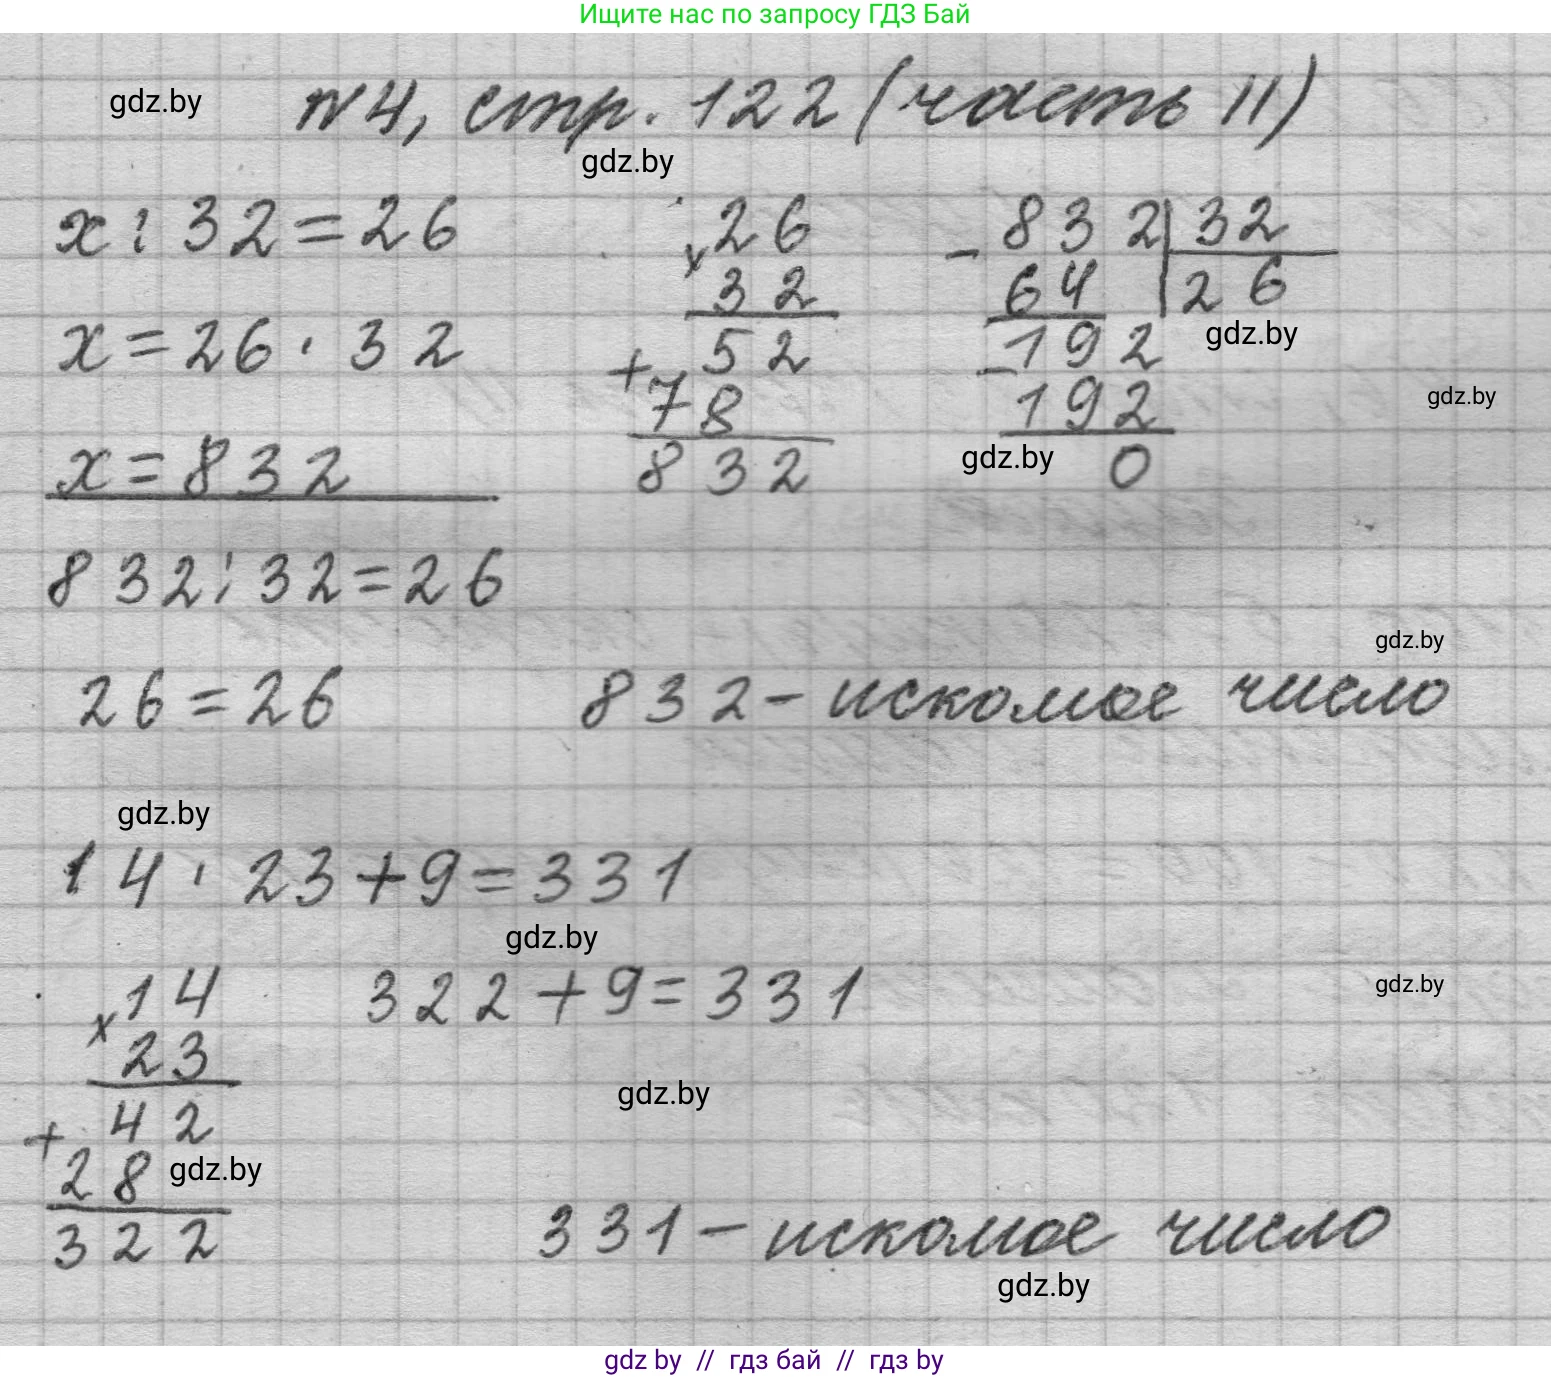 Ищите нас по запросу ГДЗ Бай
gdz.by
№4, стр. 122 (часть II)
gdz.by
x : 32 = 26
x = 26 · 32
x = 832
832 : 32 = 26
26 = 26
× 26
32
+ 52
78
832
- 832 | 32
64 | 26
gdz.by
- 192
192
gdz.by
0
gdz.by
gdz.by
832 - искомое число
gdz.by
14 · 23 + 9 = 331
gdz.by
× 14
23
+ 42
28
322
gdz.by
322 + 9 = 331
gdz.by
gdz.by
331 - искомое число
gdz.by
gdz by // гдз бай // гдз by